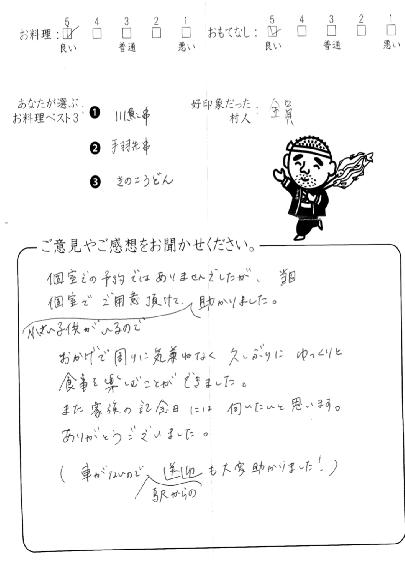 お料理： 5 4 3 2 1 おもてなし： 5 4 3 2 1
良い 普通 悪い 良い 普通 悪い
あなたが選ぶ
お料理ベスト3
❶ 川魚串
❷ 手羽先串
❸ きのこうどん
好印象だった
村人 全員
ご意見やご感想をお聞かせください。
個室での予約ではありませんでしたが、当日
個室でご用意頂けて、助かりました。
小さい子供がいるので
おかげで周りに気兼ねなく久しぶりにゆっくりと
食事を楽しむことができました。
また家族の記念日には伺いたいと思います。
ありがとうございました。
(車がないので 送迎も大変助かりました！)
駅からの